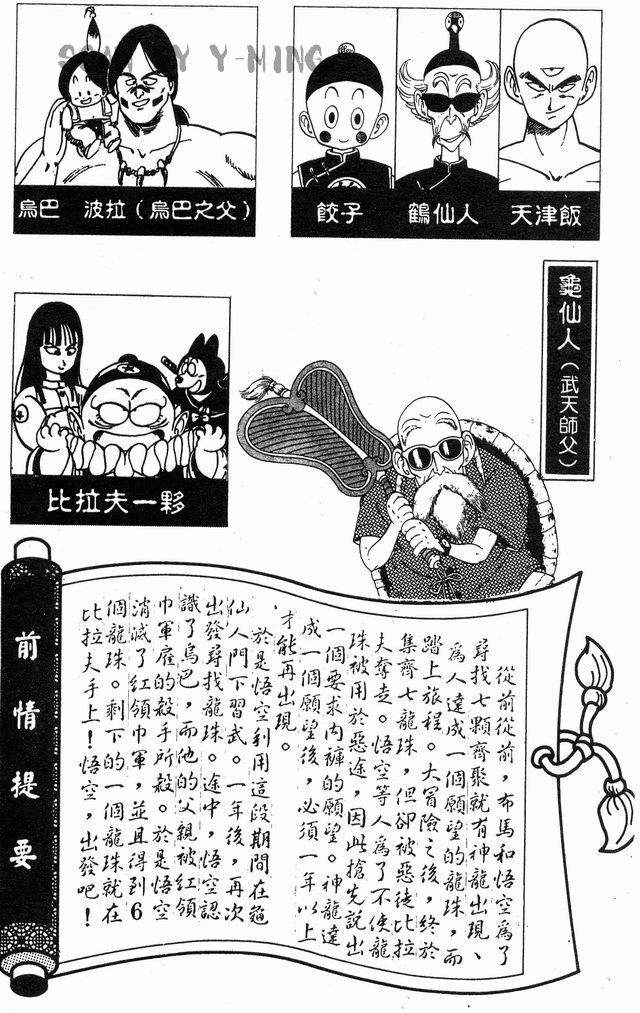 SCAN BY Y-MING
烏巴 波拉（烏巴之父）
餃子
鶴仙人
天津飯
龜仙人（武天師父）
比拉夫一夥
前情提要
從前從前，布馬和悟空為了
尋找七顆齊聚就有神龍出現、
為人達成一個願望的龍珠，而
踏上旅程。大冒險之後，終於
集齊七龍珠，但卻被惡徒比拉
夫奪走。悟空等人為了不使龍
珠被用於惡途，因此搶先說出
一個要求內褲的願望。神龍達
成一個願望後，必須一年以上
才能再出現。
於是悟空利用這段期間在龜
仙人門下習武。一年後，再次
出發尋找龍珠。途中，悟空認
識了烏巴，而他的父親被紅領
巾軍雇的殺手所殺。於是悟空
消滅了紅領巾軍，並且得到6
個龍珠。剩下的一個龍珠就在
比拉夫手上！悟空，出發吧！